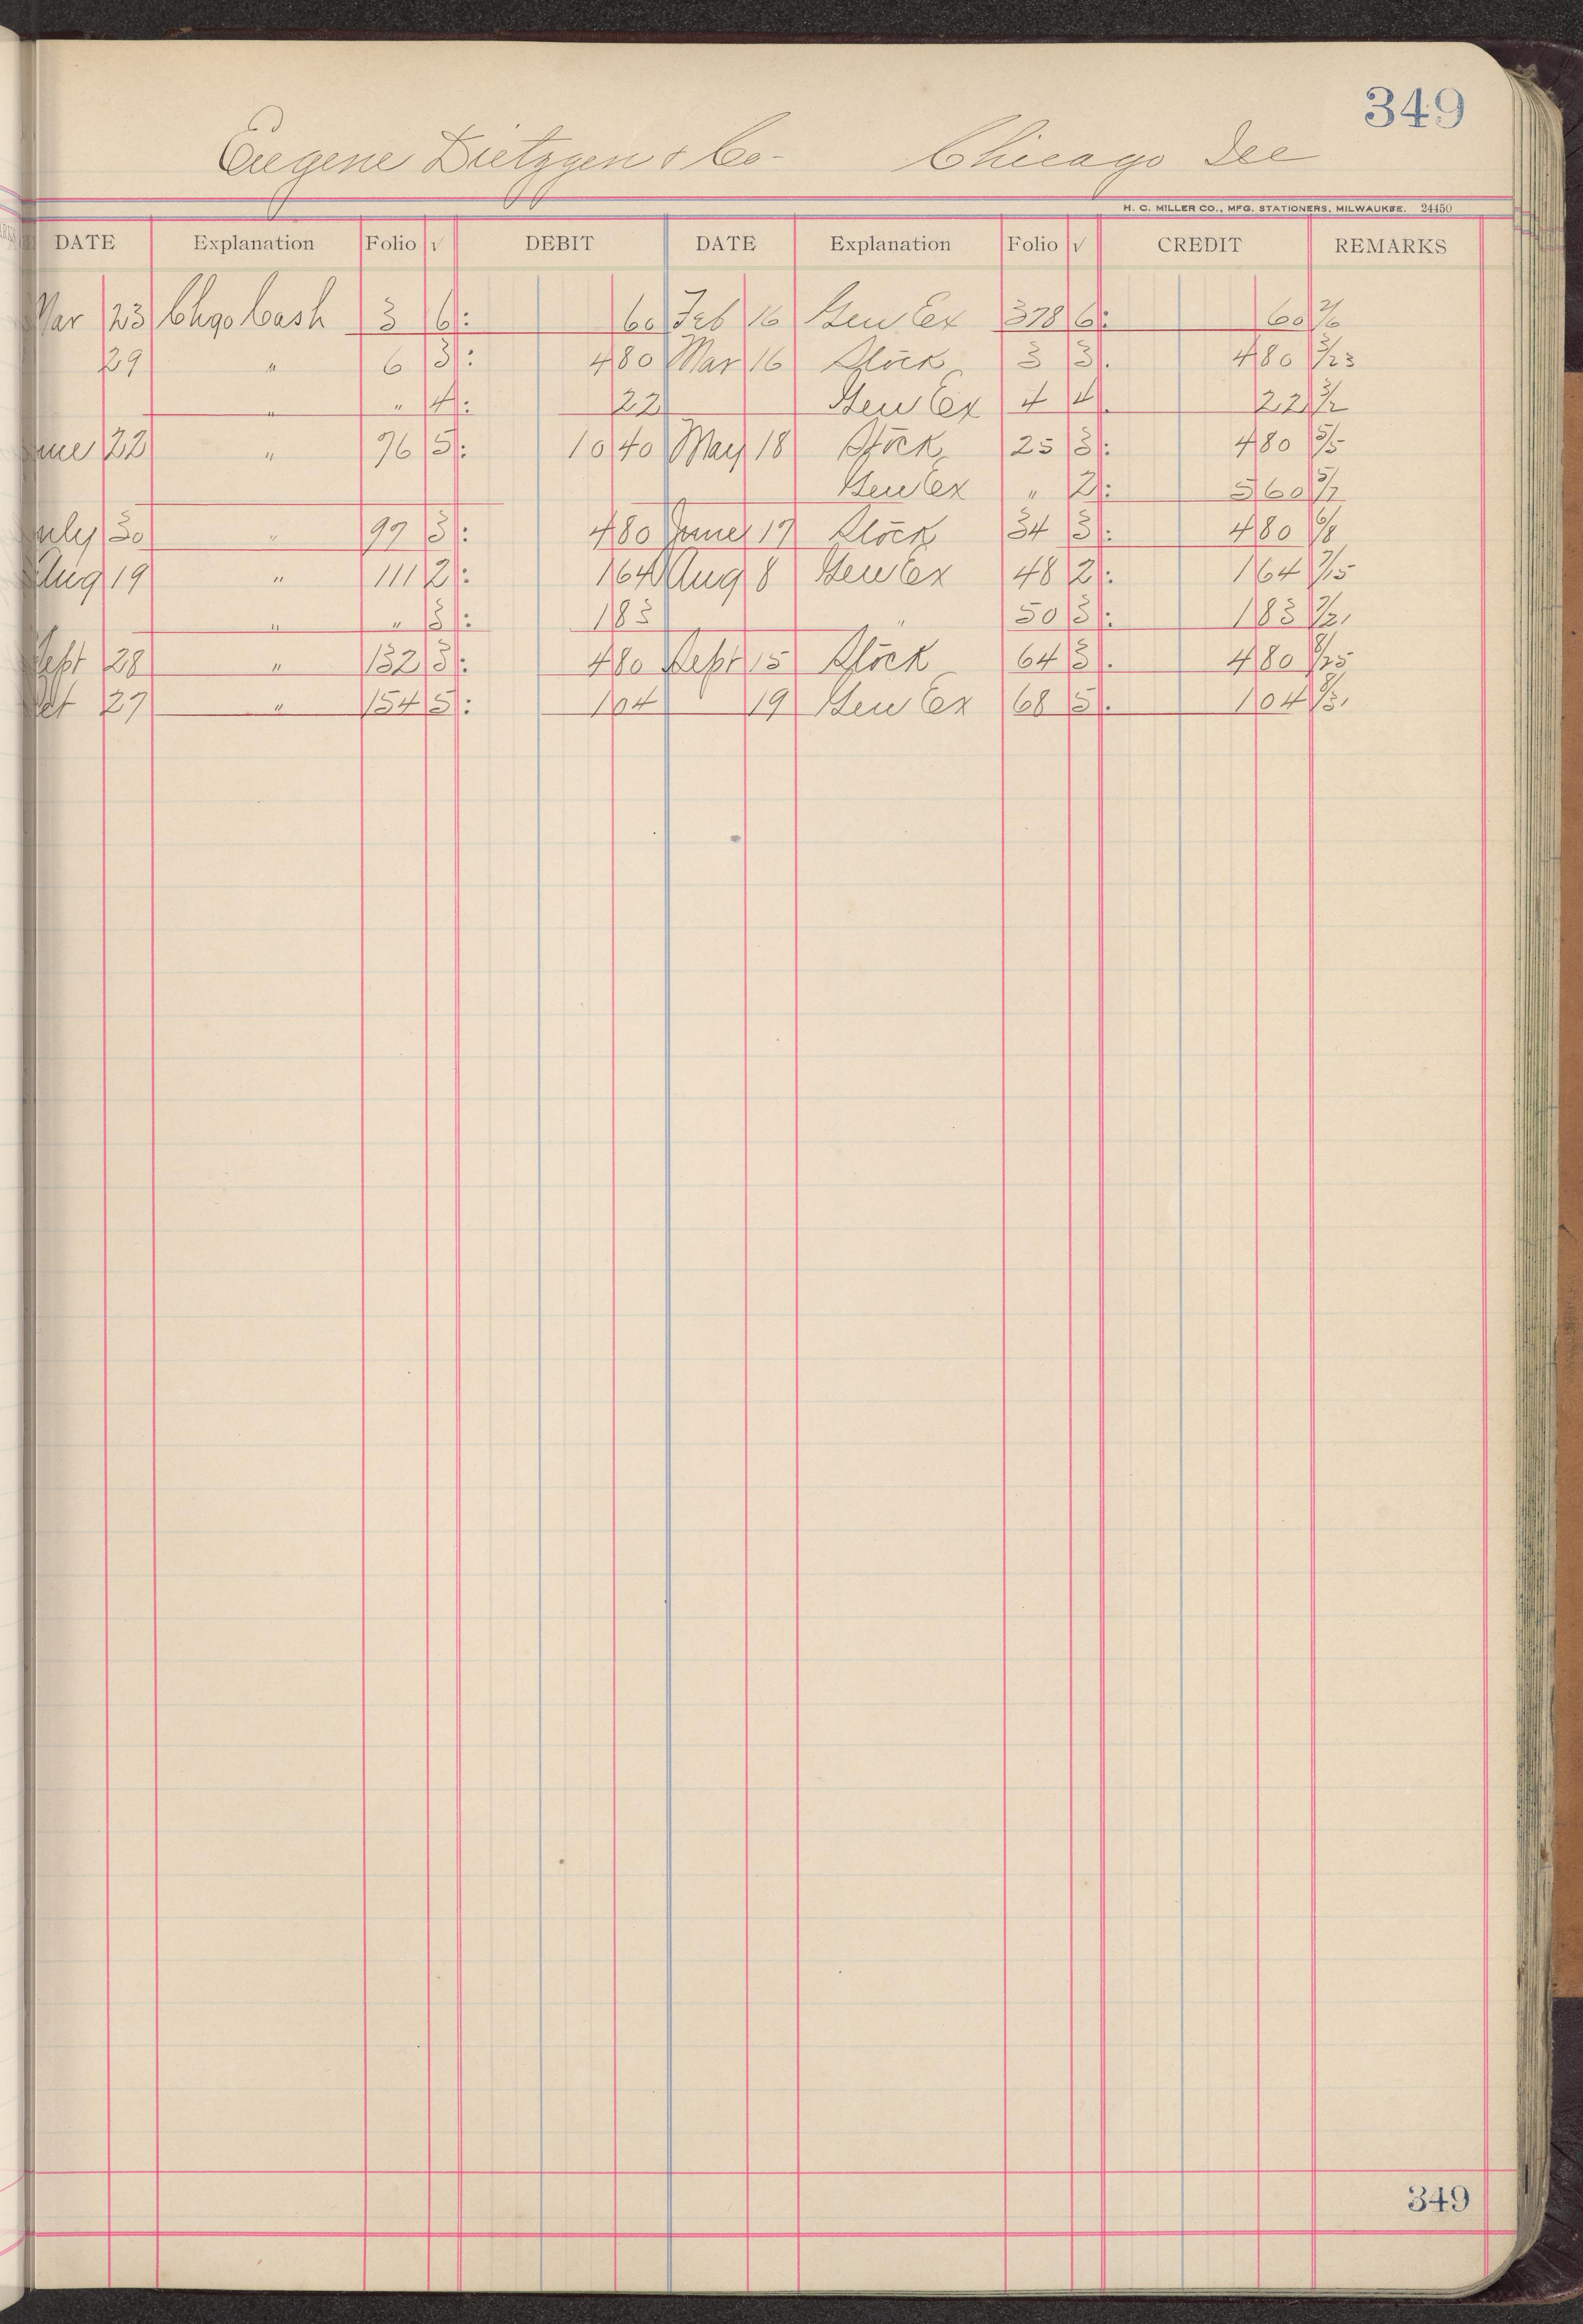 349
Eugene Dietzgen & Co- Chicago Ill
H. C. MILLER CO., MFG. STATIONERS, MILWAUKEE. 24450
DATE Explanation Folio √ DEBIT DATE Explanation Folio √ CREDIT REMARKS
Mar 23 Chgo Cash 3 6: 60 Feb 16 Gen Ex 378 6: 60 2/6
29 " 6 3: 480 Mar 16 Stock 3 3: 480 3/23
" " 4: 22 Gen Ex 4 4 22 3/2
une 22 " 76 5: 1040 May 18 Stock 25 3: 480 5/5
Gen Ex " 2: 560 5/7
July 30 " 97 3: 480 June 17 Stock 34 3: 480 6/8
Aug 19 " 111 2: 164 Aug 8 Gen Ex 48 2: 164 7/15
" " 3: 183 " 50 3: 183 7/21
Sept 28 " 132 3: 480 Sept 15 Stock 64 3: 480 8/25
Oct 27 " 154 5: 104 19 Gen Ex 68 5: 104 8/31
349